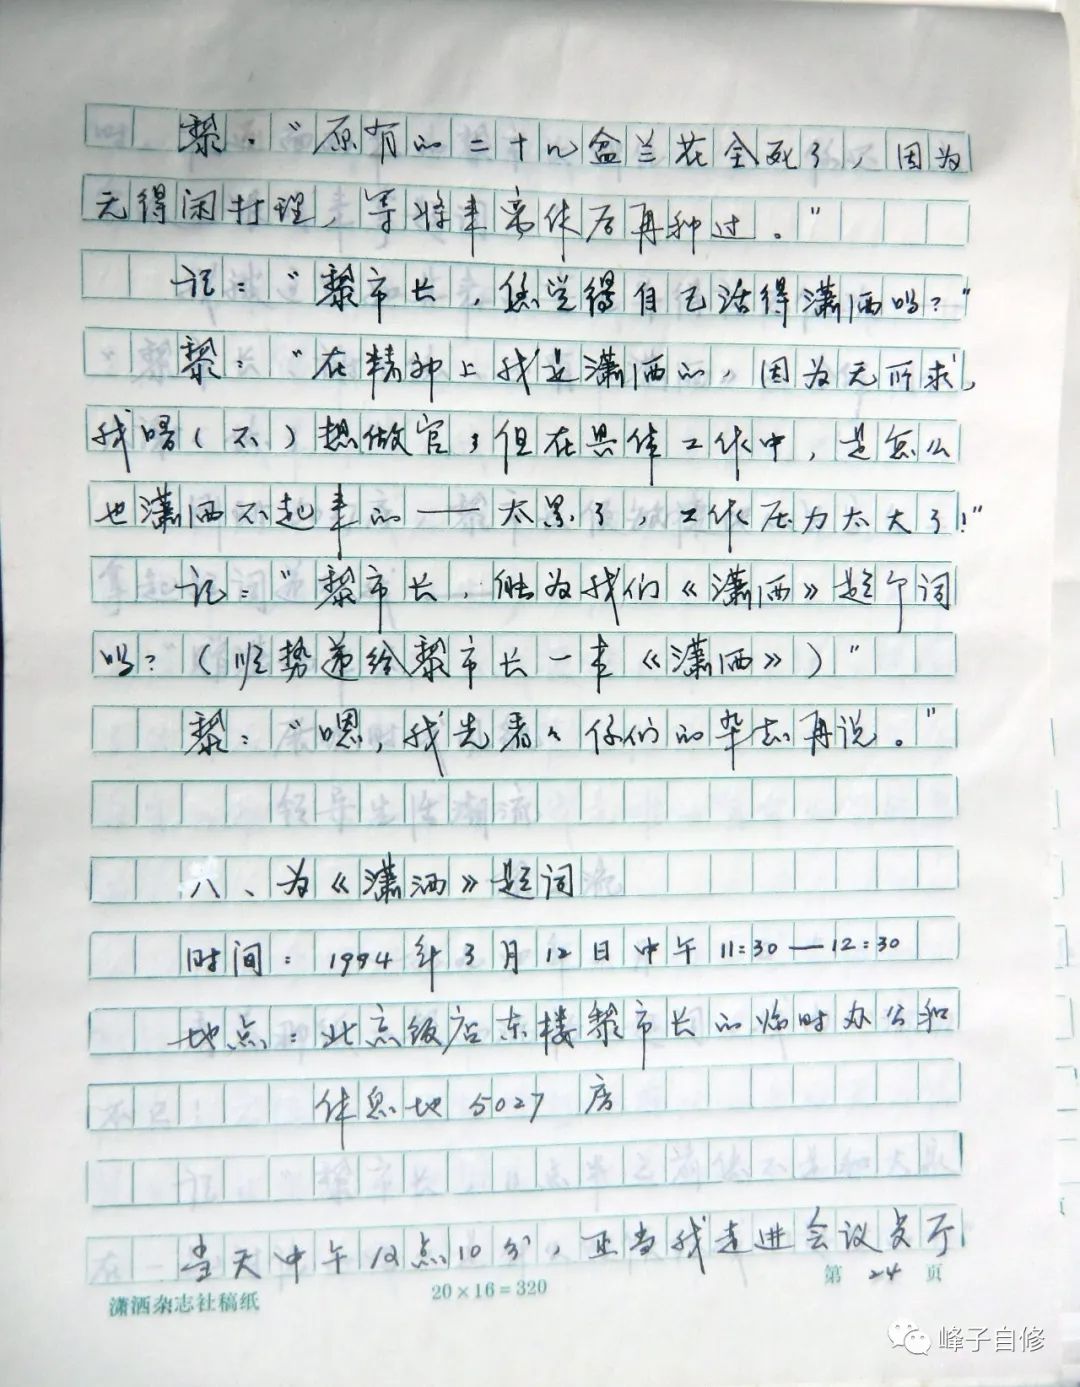 黎：“原有的二十几盆兰花全死了，因为
无得闲打理，等将来离休后再种过。”
记：“黎市长，您觉得自己活得潇洒吗？”
黎：“在精神上我是潇洒的，因为无所求，
我唔（不）想做官；但在具体工作中，是怎么
也潇洒不起来的——太累了，工作压力太大了！”
记：“黎市长，能为我们《潇洒》题个词
吗？（顺势递给黎市长一本《潇洒》）”
黎：“嗯，我先看々你们的杂志再说。”
八、为《潇洒》题词
时间：1994年3月12日中午11:30—12:30
地点：北京饭店东楼黎市长的临时办公和
休息地5027房
当天中午12点10分，正当我走进会议员厅
潇洒杂志社稿纸
20×16=320
第24页
峰子自修